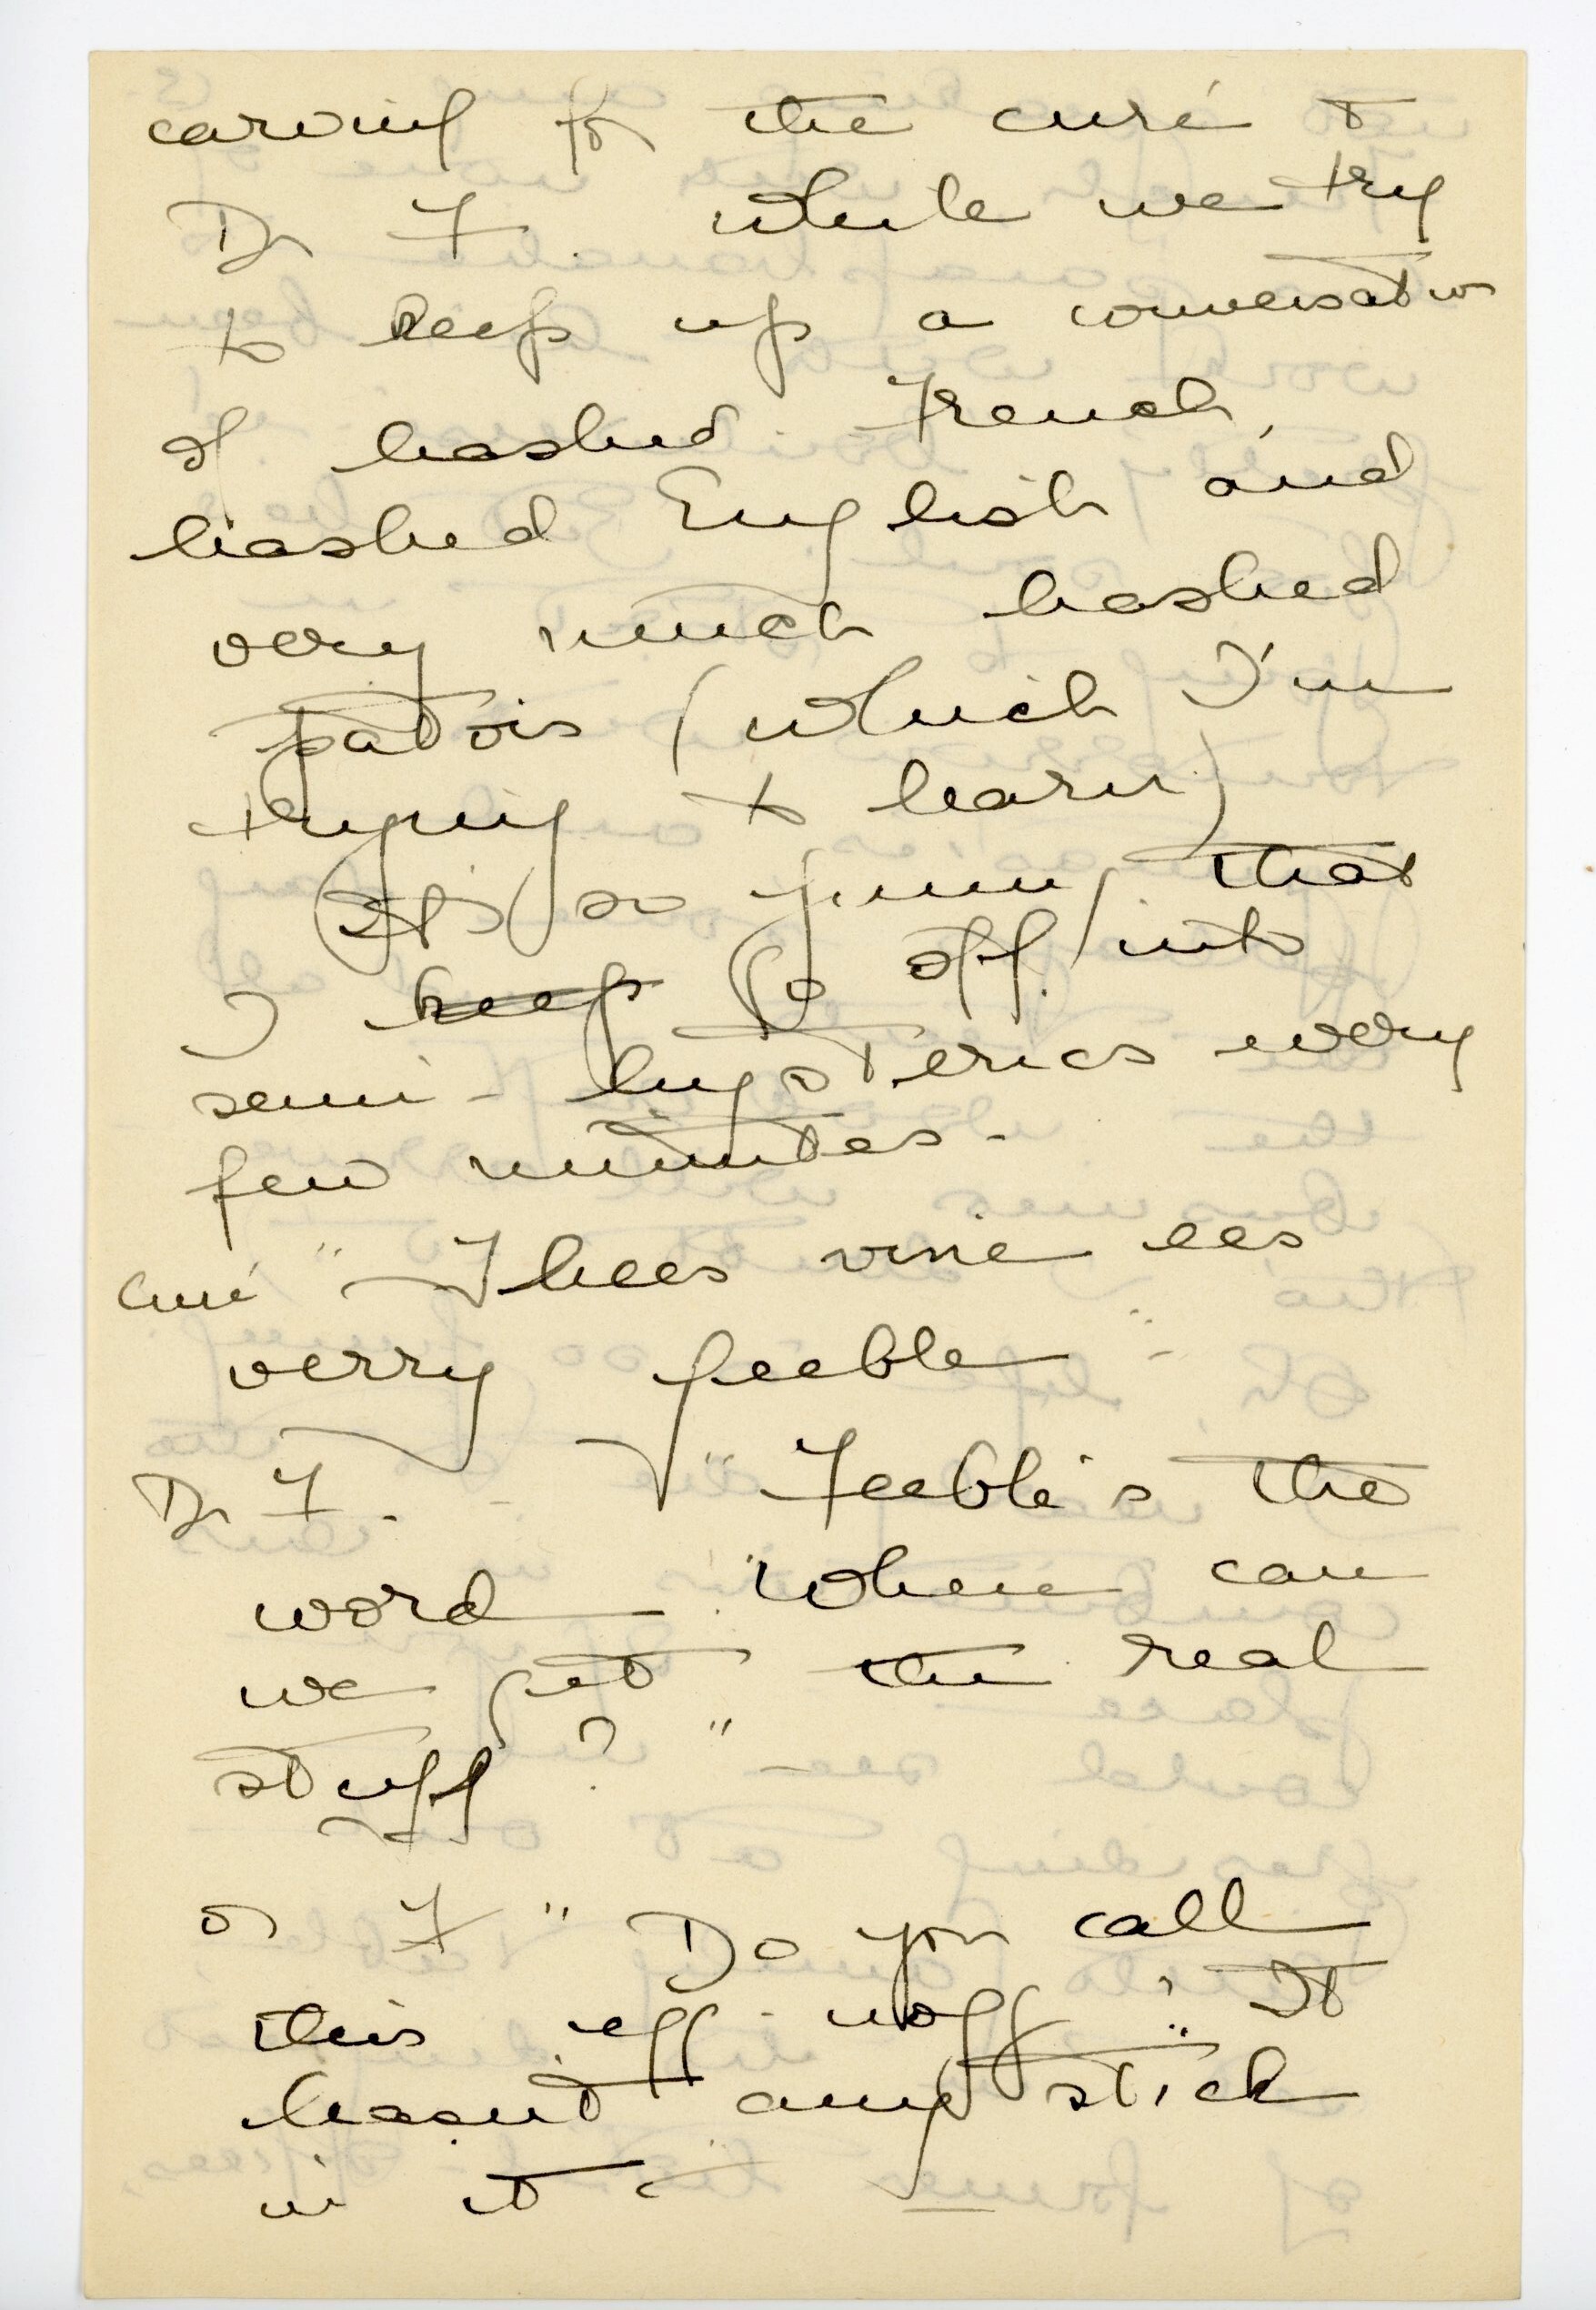 carving for the curé &
Dr F. while we try
to keep up a conversation
of hashed French,
hashed English and
very much hashed
patois (which I'm
trying to learn)
It's so funny that
I keep go off into
semi-hysterics every
few minutes -
Curé "Thees vine ees
verry feeble"
Dr F. - "Feeble's the
word - Where can
we get the real
stuff?"
Dr F "Do you call
this egg nogg? It
hasn't any stick
in it -